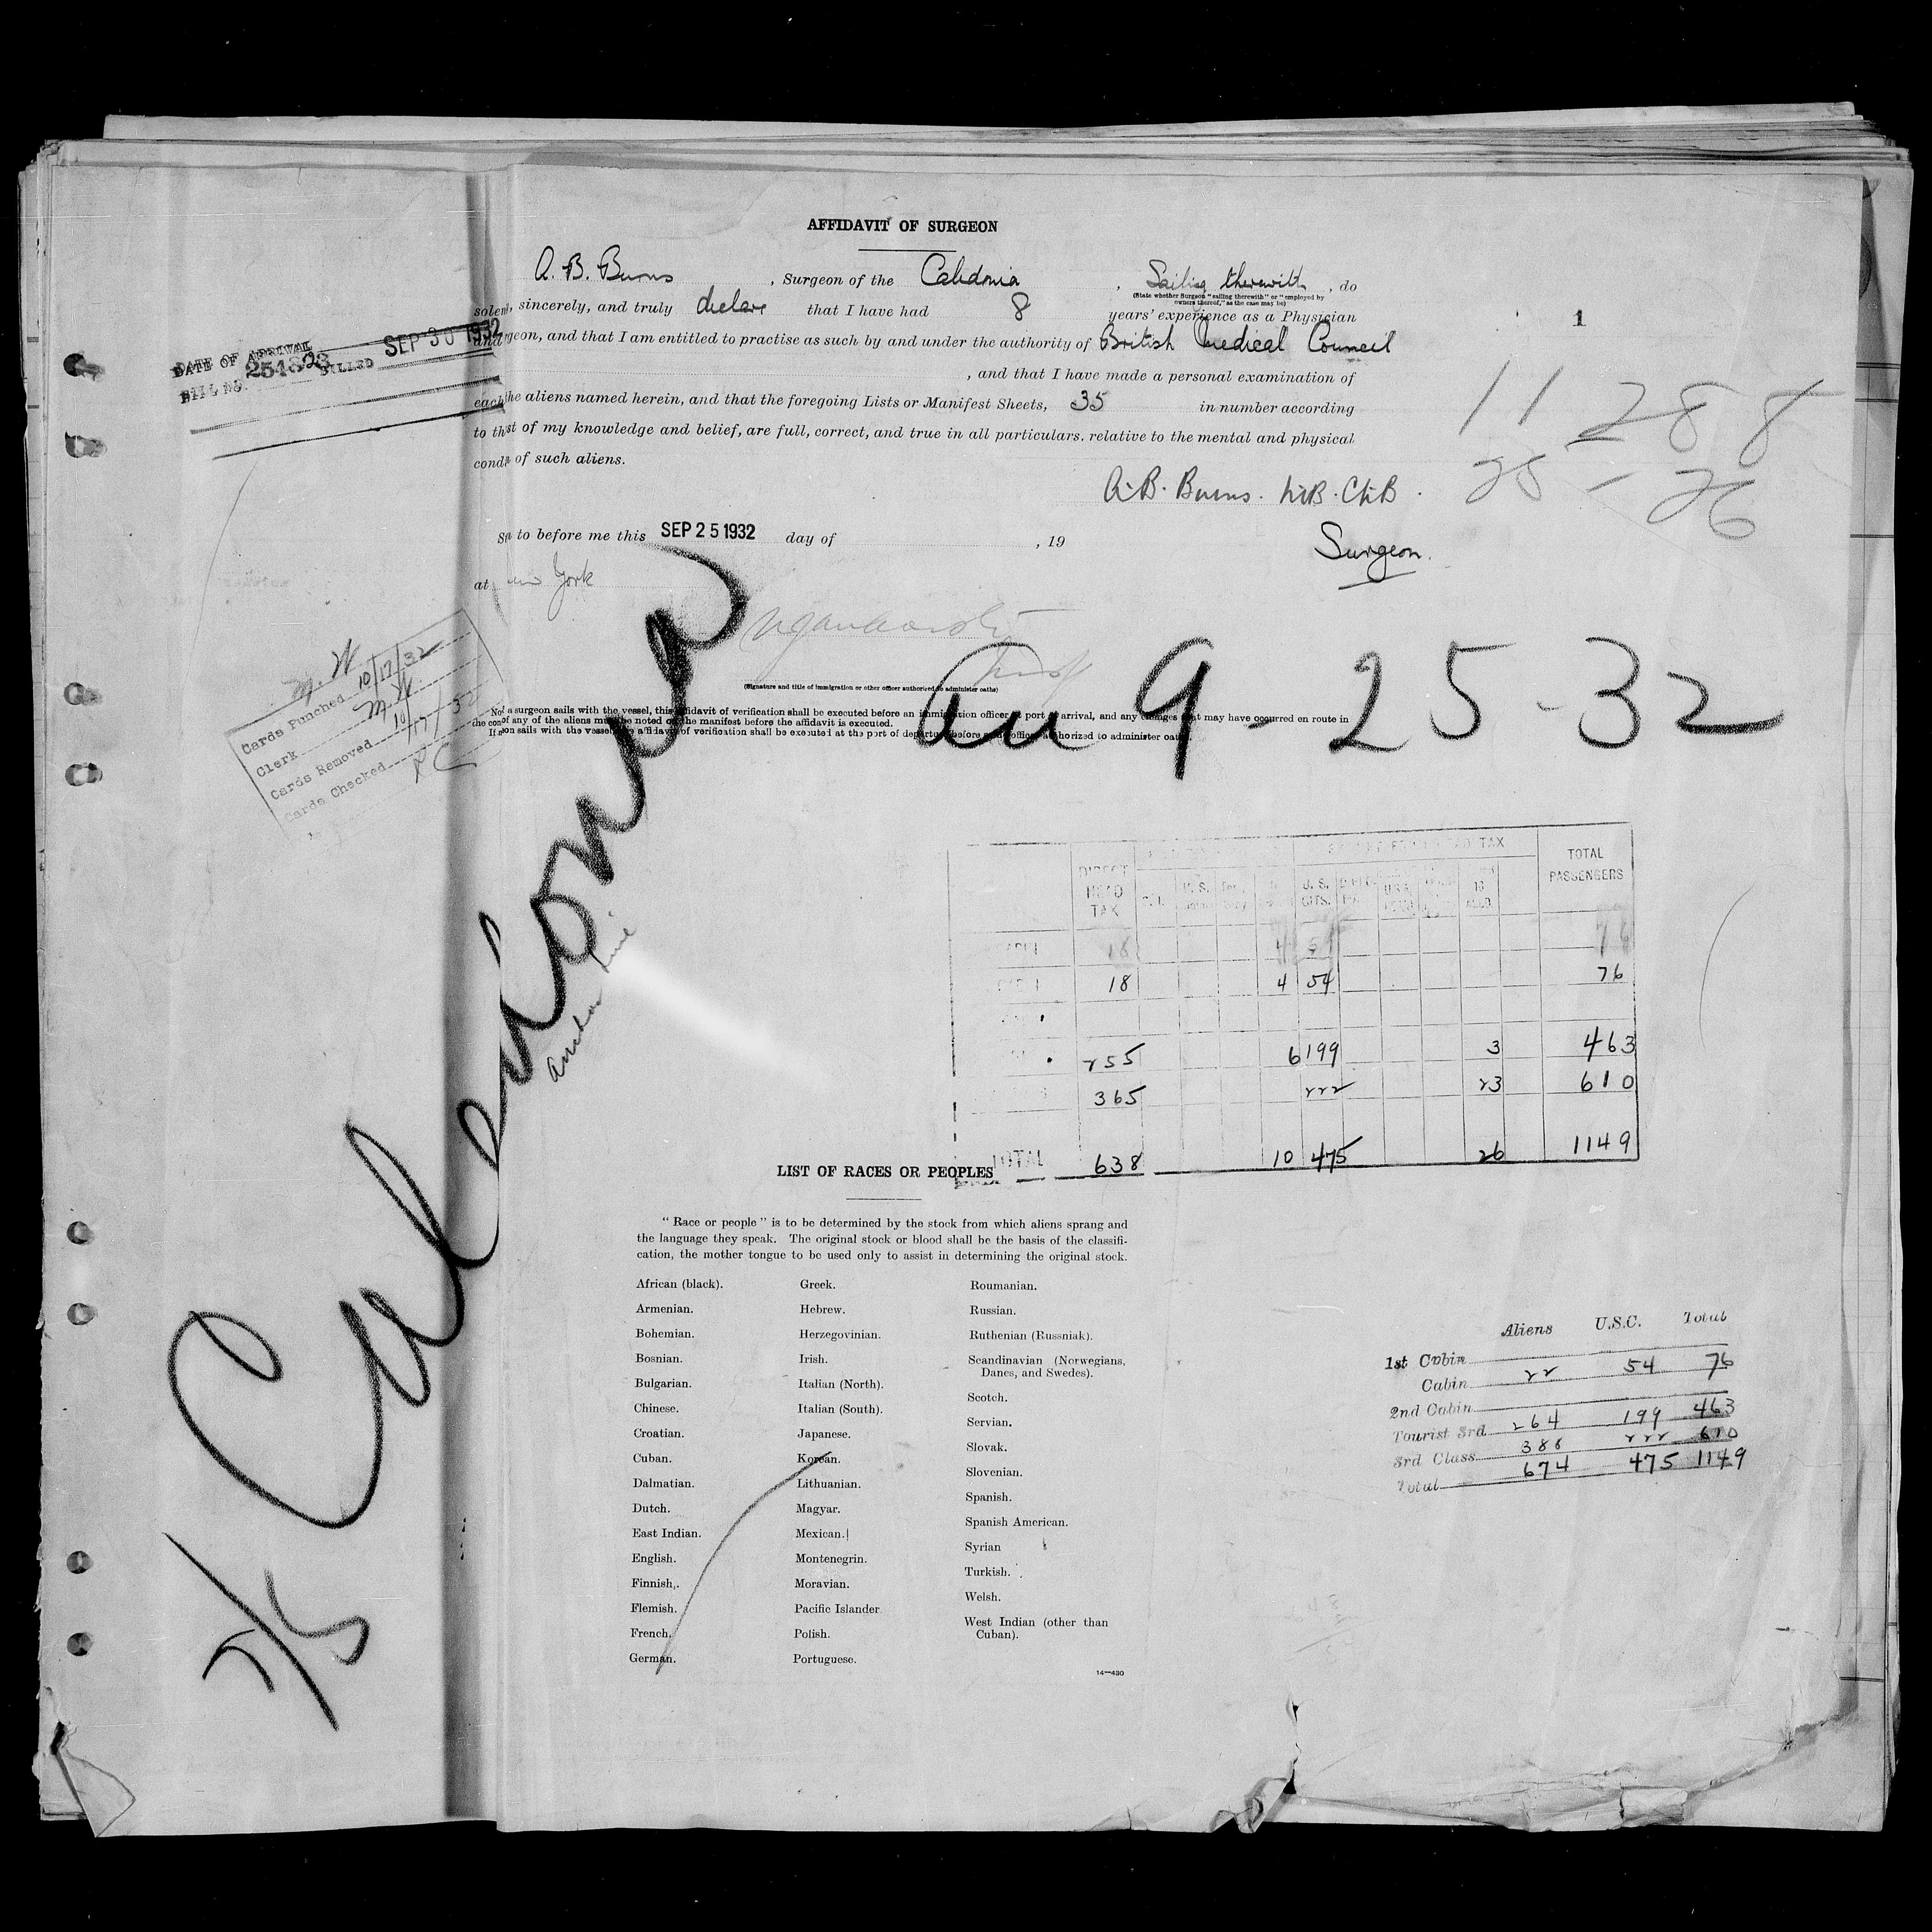 AFFIDAVIT OF SURGEON
A. B. Burns , Surgeon of the Caledonia , Sailing therewith , do
(State whether Surgeon "sailing therewith" or "employed by
owners thereof," as the case may be)
solem, sincerely, and truly declare that I have had 8 years' experience as a Physician
and geon, and that I am entitled to practise as such by and under the authority of British Medical Council
, and that I have made a personal examination of
each the aliens named herein, and that the foregoing Lists or Manifest Sheets, 35 in number according
to th st of my knowledge and belief, are full, correct, and true in all particulars. relative to the mental and physical
condi of such aliens.
A. B. Burns. M.B. Ch.B.
Surgeon.
to before me this SEP 25 1932 day of , 19
at York
(Signature and title of immigration or other officer authorized to administer oaths)
a surgeon sails with the vessel, this affidavit of verification shall be executed before an immigration officer port arrival, and any changes that may have occurred en route in
the con of any of the aliens must be noted on the manifest before the affidavit is executed.
If on sails with the vessel, affidavit of verification shall be executed at the port of departure before officer authorized to administer oaths
1
11 288
25 - 26
DATE OF ARRIVAL
BILL NO. 251323 BILLED SEP 30 1932
M. W
Cards Punched 10/17/32
Clerk M. W.
Cards Removed 10/17/32
Cards Checked
S/S Caledonia
Anchor Line
9 - 25 - 32
DIRECT HEAD TAX
U.S. CITS.
TOTAL PASSENGERS
18 4 54 76
18 4 54 76
255 6 199 3 463
365 222 23 610
TOTAL 638 10 475 26 1149
LIST OF RACES OR PEOPLES
"Race or people" is to be determined by the stock from which aliens sprang and
the language they speak. The original stock or blood shall be the basis of the classifi-
cation, the mother tongue to be used only to assist in determining the original stock.
African (black).
Armenian.
Bohemian.
Bosnian.
Bulgarian.
Chinese.
Croatian.
Cuban.
Dalmatian.
Dutch.
East Indian.
English.
Finnish.
Flemish.
French.
German.
Greek.
Hebrew.
Herzegovinian.
Irish.
Italian (North).
Italian (South).
Japanese.
Korean.
Lithuanian.
Magyar.
Mexican.
Montenegrin.
Moravian.
Pacific Islander
Polish.
Portuguese.
Roumanian.
Russian.
Ruthenian (Russniak).
Scandinavian (Norwegians,
Danes, and Swedes).
Scotch.
Servian.
Slovak.
Slovenian.
Spanish.
Spanish American.
Syrian
Turkish.
Welsh.
West Indian (other than
Cuban).
14—430
Aliens U.S.C. Total
1st Cabin
Cabin 22 54 76
2nd Cabin
Tourist 3rd 264 199 463
3rd Class 388 222 610
Total 674 475 1149